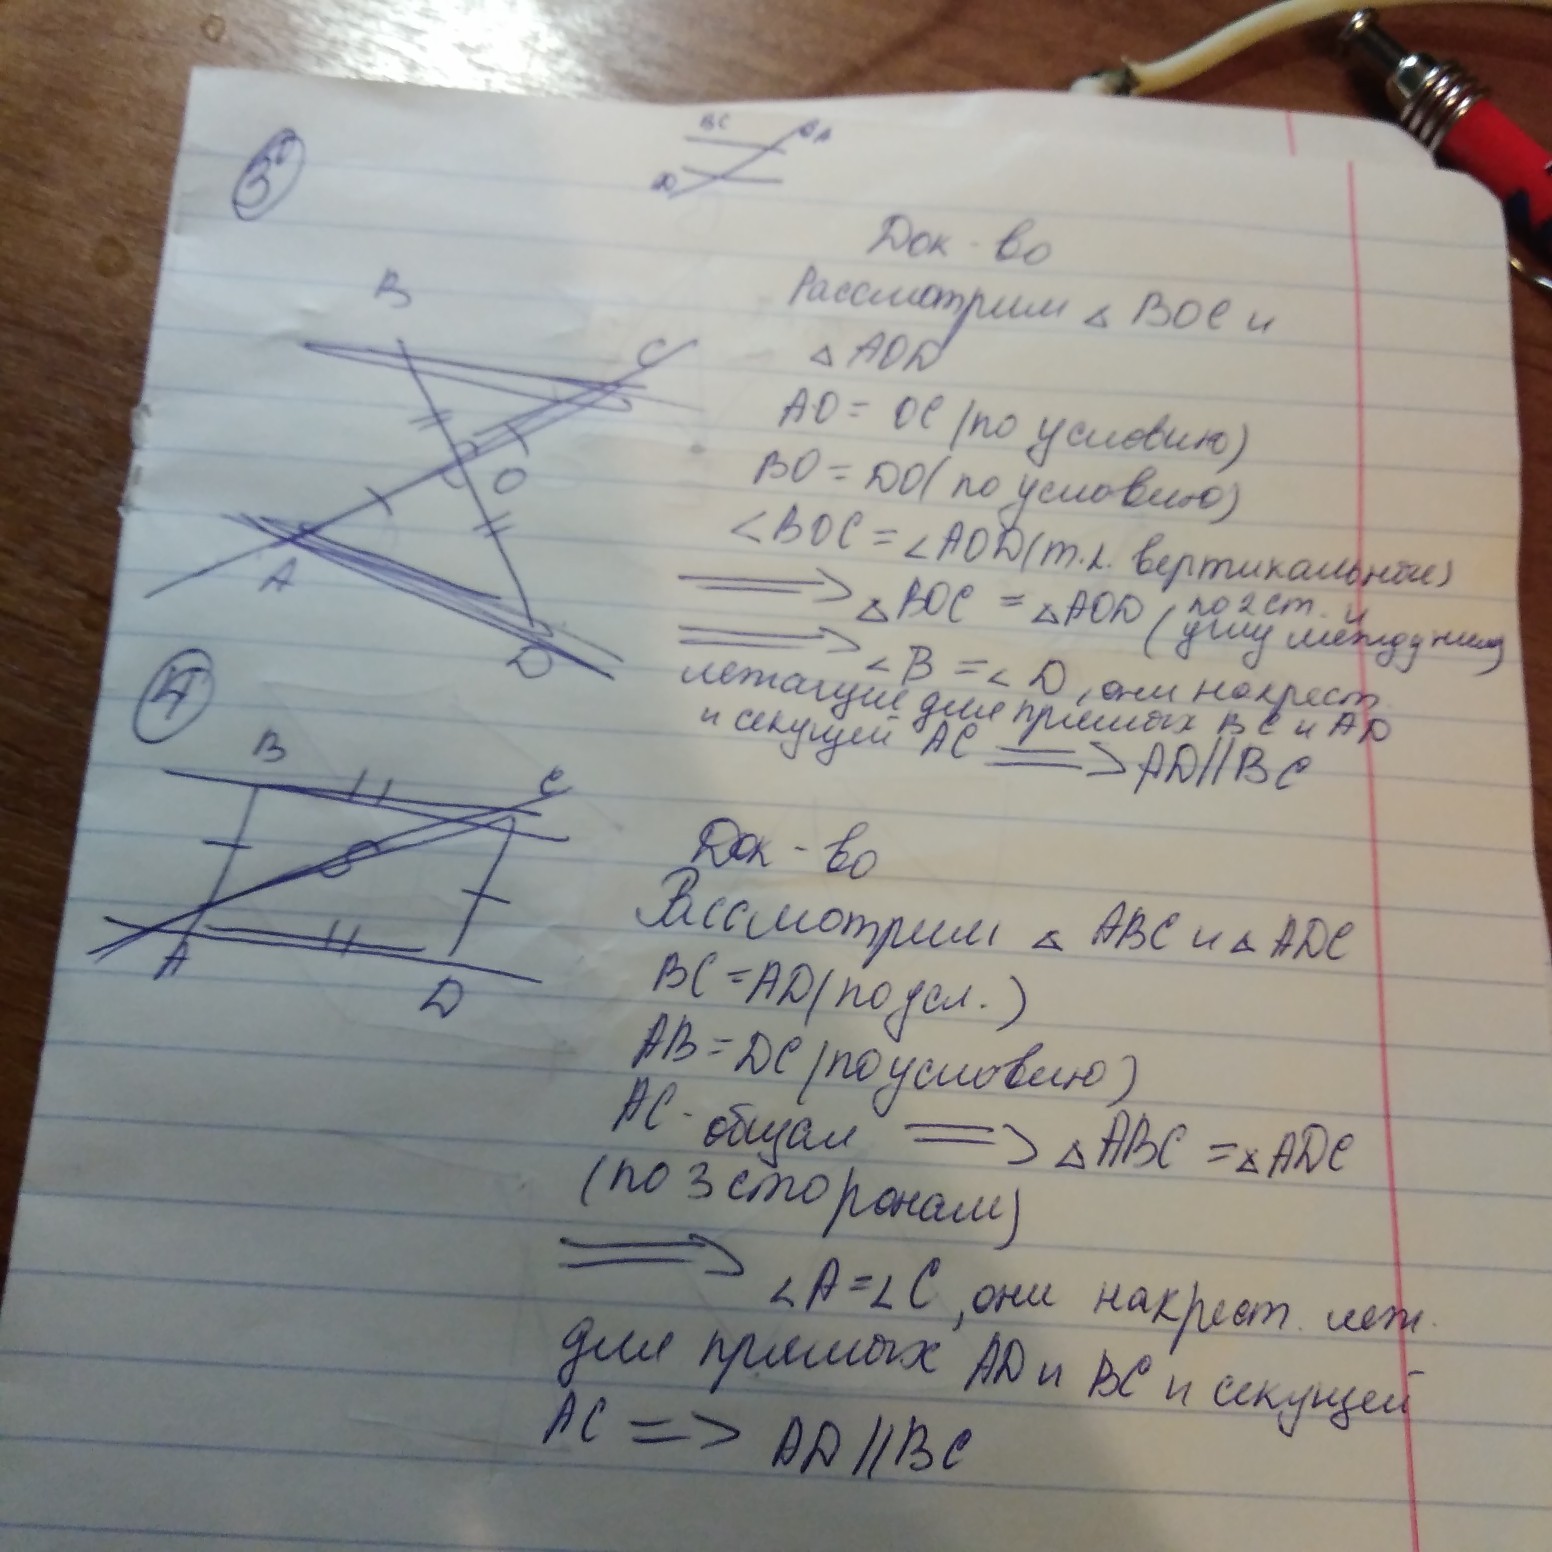 3
BC
D
Док-во
Рассмотрим △ BOC и
△ AOD
B
C
AO = OC (по условию)
BO = DO (по условию)
O
∠BOC = ∠AOD (т.к. вертикальные)
A
⟹ △BOC = △AOD (по 2 ст. и
углу между ними)
D
⟹ ∠B = ∠D, они накрест
лежащие для прямых BC и AD
и секущей AC ⟹ AD || BC
4
B
C
A
D
Док-во
Рассмотрим △ ABC и △ ADC
BC = AD (по усл.)
AB = DC (по условию)
AC - общая ⟹ △ABC = △ADC
(по 3 сторонам)
⟹ ∠A = ∠C, они накрест. леж.
для прямых AD и BC и секущей
AC => AD || BC